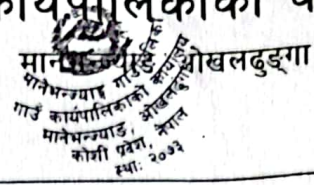 मानेभन्ज्याङ, ओखलढुङ्गा
मानेभन्ज्याङ गाउँपालिका
गाउँ कार्यपालिकाको कार्यालय
मानेभन्ज्याङ, ओखलढुङ्गा
कोशी प्रदेश, नेपाल
स्था: २०७३